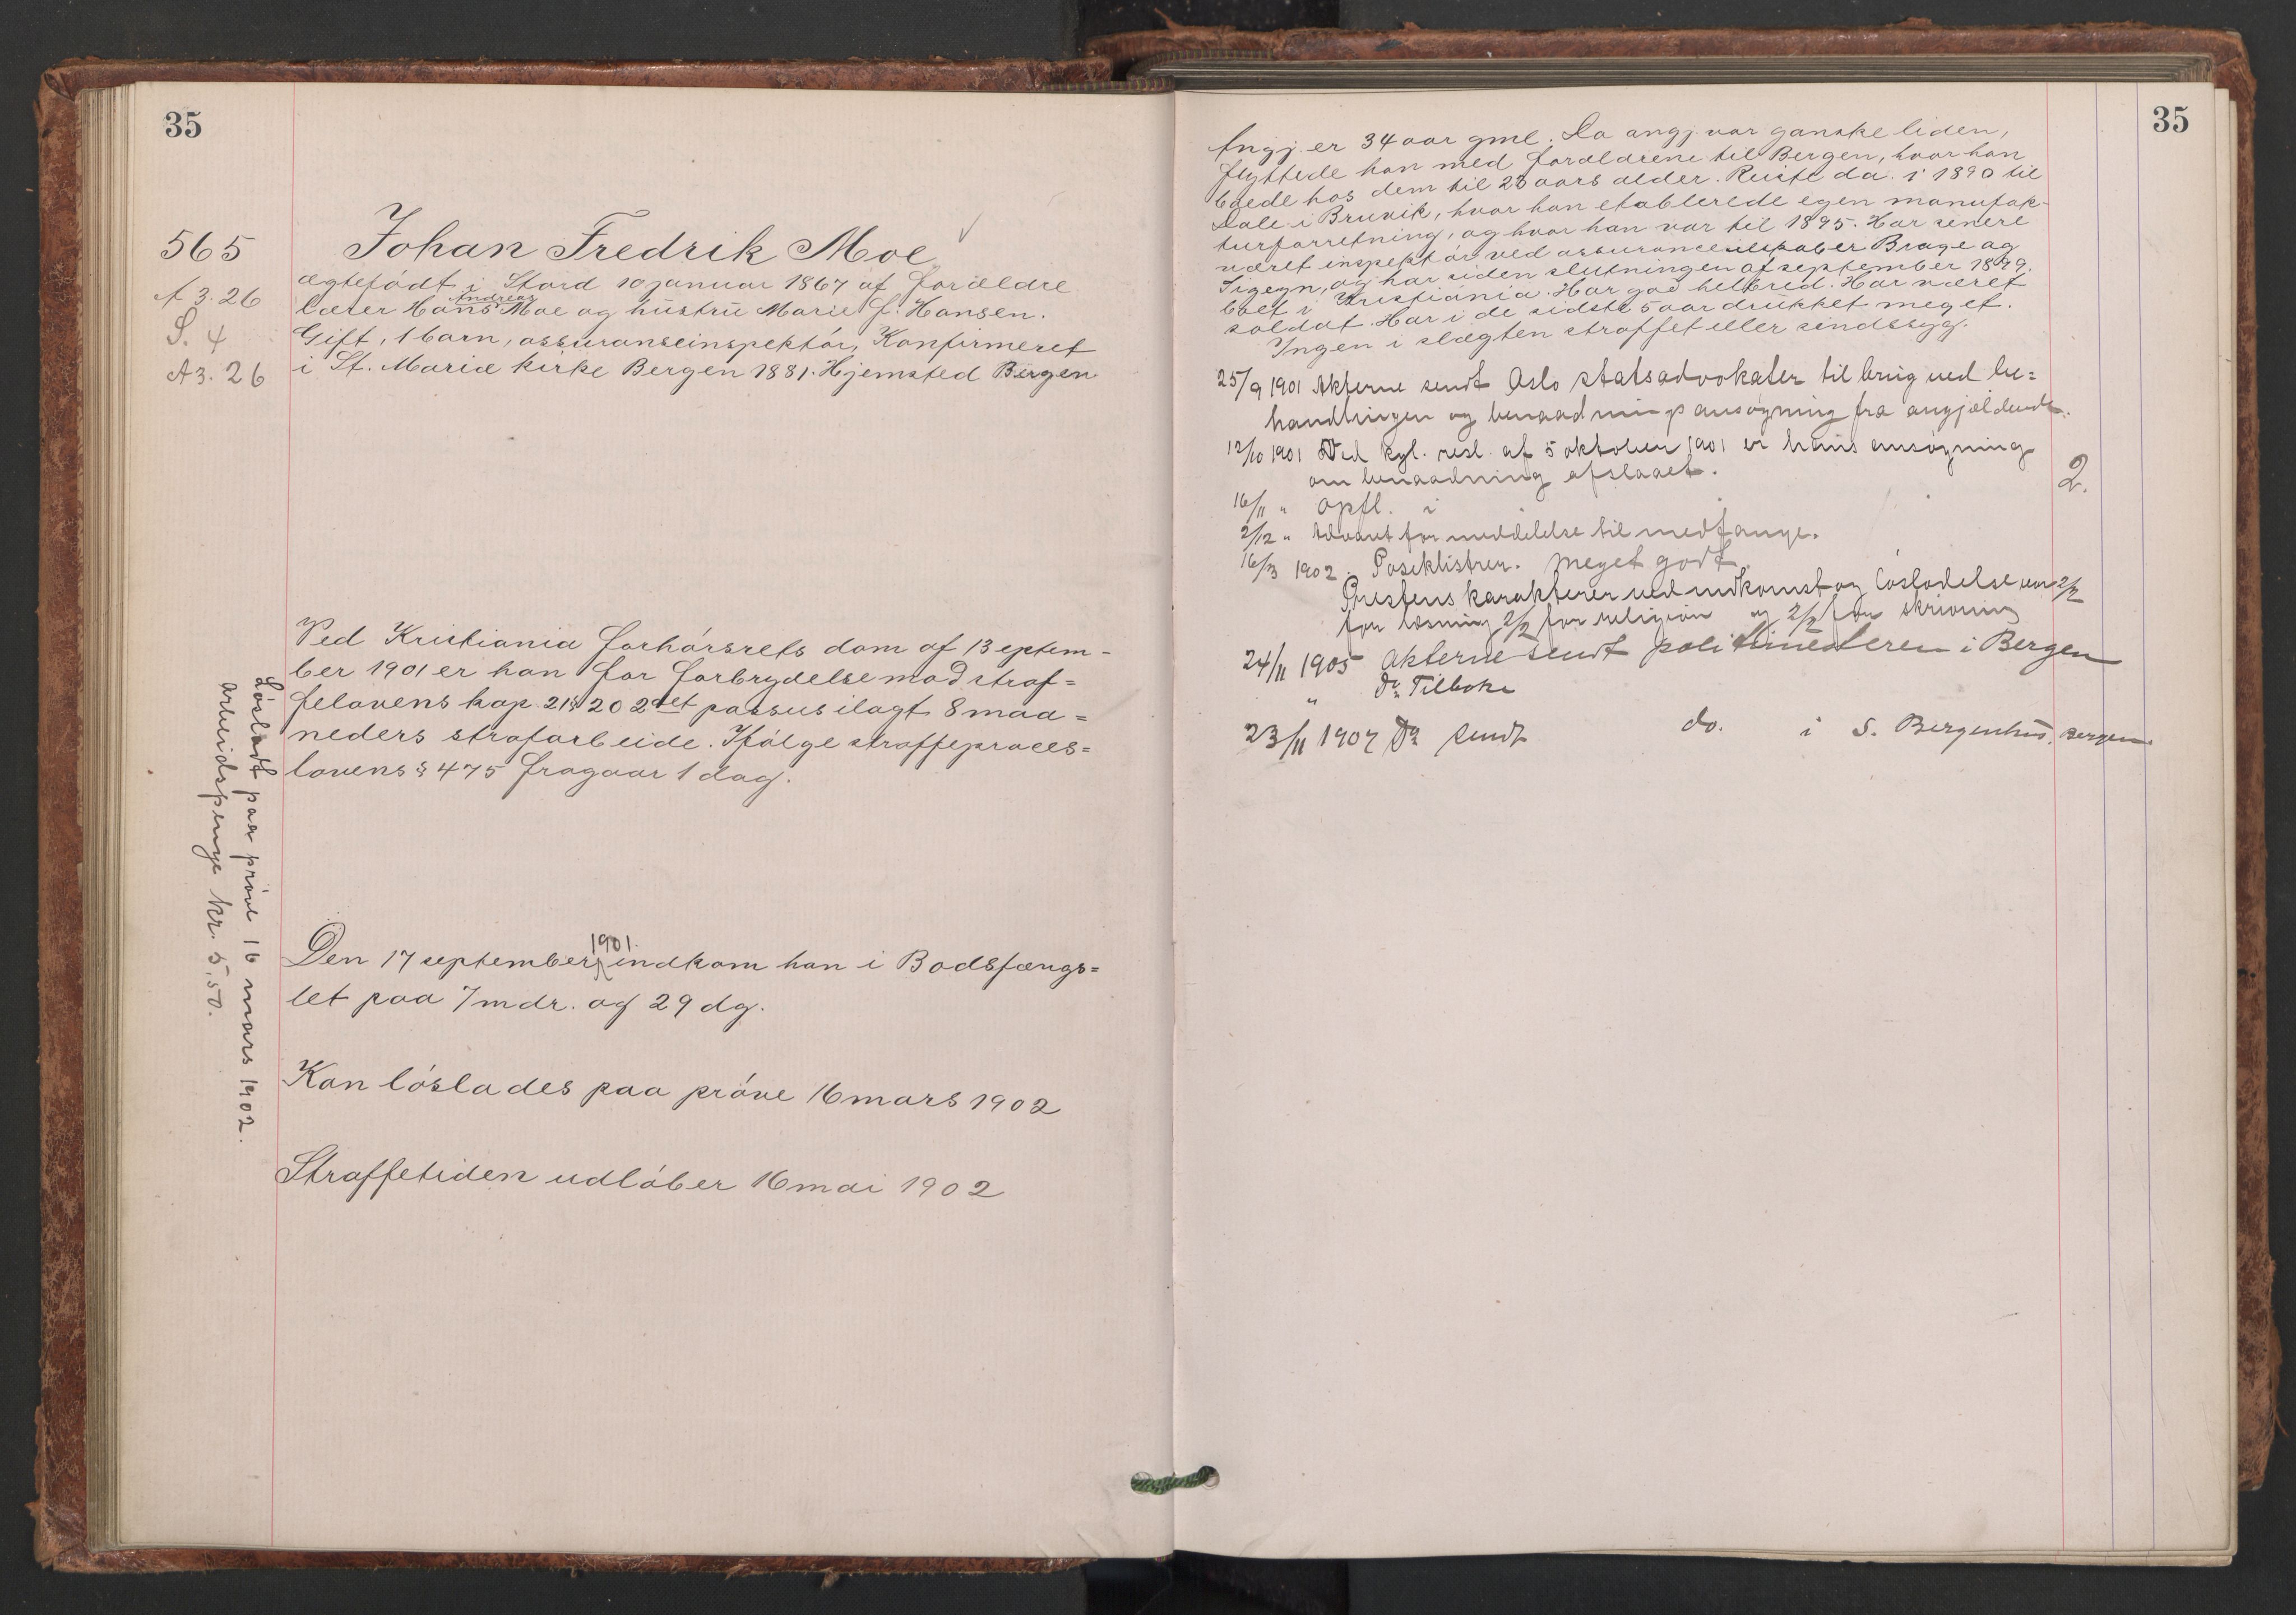 35
565
A 3. 26
S. 4
A 3. 26
Johan Fredrik Moe
ægtefødt i Stord 10 januar 1867 af forældre
Andreas
lærer Hans Moe og hustru Marie f. Hansen.
Gift, 1 barn, assuranseinspektør, Konfirmeret
i St. Mariæ kirke Bergen 1881. Hjemsted Bergen
Ved Kristiania forhørsrets dom af 13 eptem-
ber 1901 er han for forbrydelse mod straf=
felovens kap. 21 § 20 2det passus ilagt 8 maa=
neders strafarbeide. Ifølge straffeproces=
lovens § 475 fragaar 1 dag.
Løsladt paa prøve 16 mars 1902.
arbeidspenge kr. 5,50.
1901.
Den 17 september indkom han i Bodsfængs=
let paa 7 mdr. og 29 dg.
Kan løslades paa prøve 16 mars 1902
Straffetiden udløber 16 mai 1902
35
Angj. er 34 aar gml. Da angj. var ganske liden,
flyttede han med forældrene til Bergen, hvor han
boede hos dem til 23 aars alder. Reiste da i 1890 til
Dale i Bruvik, hvor han etablerede egen manufak-
turforretning, og hvor han var til 1895. Har senere
været inspektør ved assuranceselskaber Brage og
Sigyn, og har siden slutningen af september 1899.
boet i Kristiania. Har god helbred. Har været
soldat. Har i de sidste 5 aar drukket meget.
Ingen i slægten straffet eller sindssyg.
25/9 1901 Akterne sendt Oslo statsadvokater til brug ved be=
handlingen og benaadningsansøgning fra angjældende.
12/10 1901 Ved kgl. resl. af 5 oktober 1901 er hans ansøgning
om benaadning afslaaet.
2.
16/11 " Opfl. i
2/12 " advaret for meddelelse til medfange.
16/3 1902. Poseklistrer. Meget godt.
Prestens karakterer ved indkomst og løsladelse var 2/2
for læsning, 2/2 for religion og 2/2 for skrivning
24/11 1905 Akterne sendt politimesteren i Bergen
" Do Tilbake
23/11 1907 Do sendt do. i S. Bergenhus, Bergen.